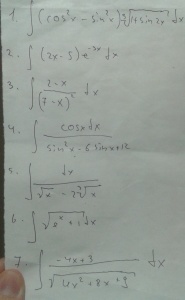 1. ∫ (cos²x - sin²x) ∛(1+sin2x) dx
2. ∫ (2x - 5) e^(-3x) dx
3. ∫ (2-x)/(7-x)⁵ dx
4. ∫ cosx dx / (sin²x - 6 sinx + 12)
5. ∫ dx / (√x - 2∛x)
6. ∫ √(e^x + 1) dx
7. ∫ (-4x+3) / √(4x² + 8x + 9) dx